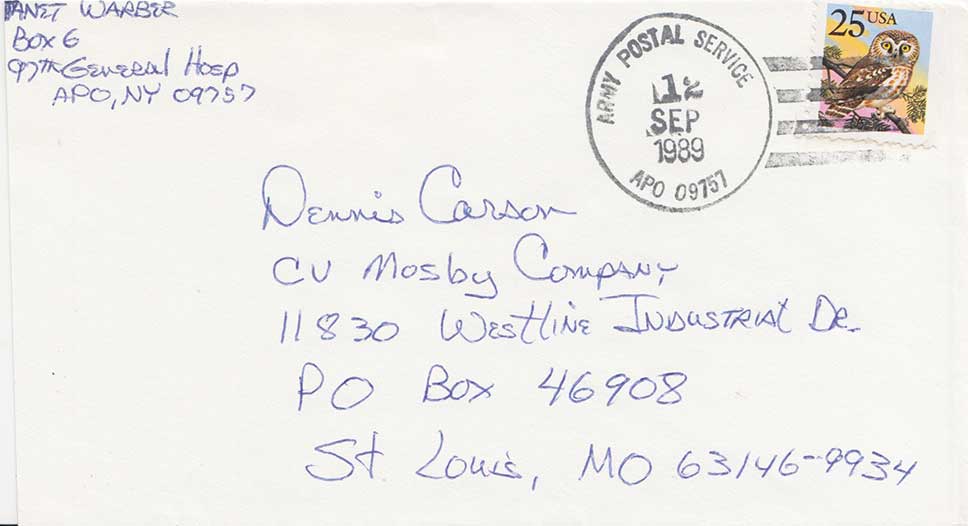 JANET WARBER
Box 6
97th General Hosp
APO, NY 09757
ARMY POSTAL SERVICE
12
SEP
1989
APO 09757
25 USA
Dennis Carson
CV Mosby Company
11830 Westline Industrial Dr.
PO Box 46908
St. Louis, MO 63146-9934